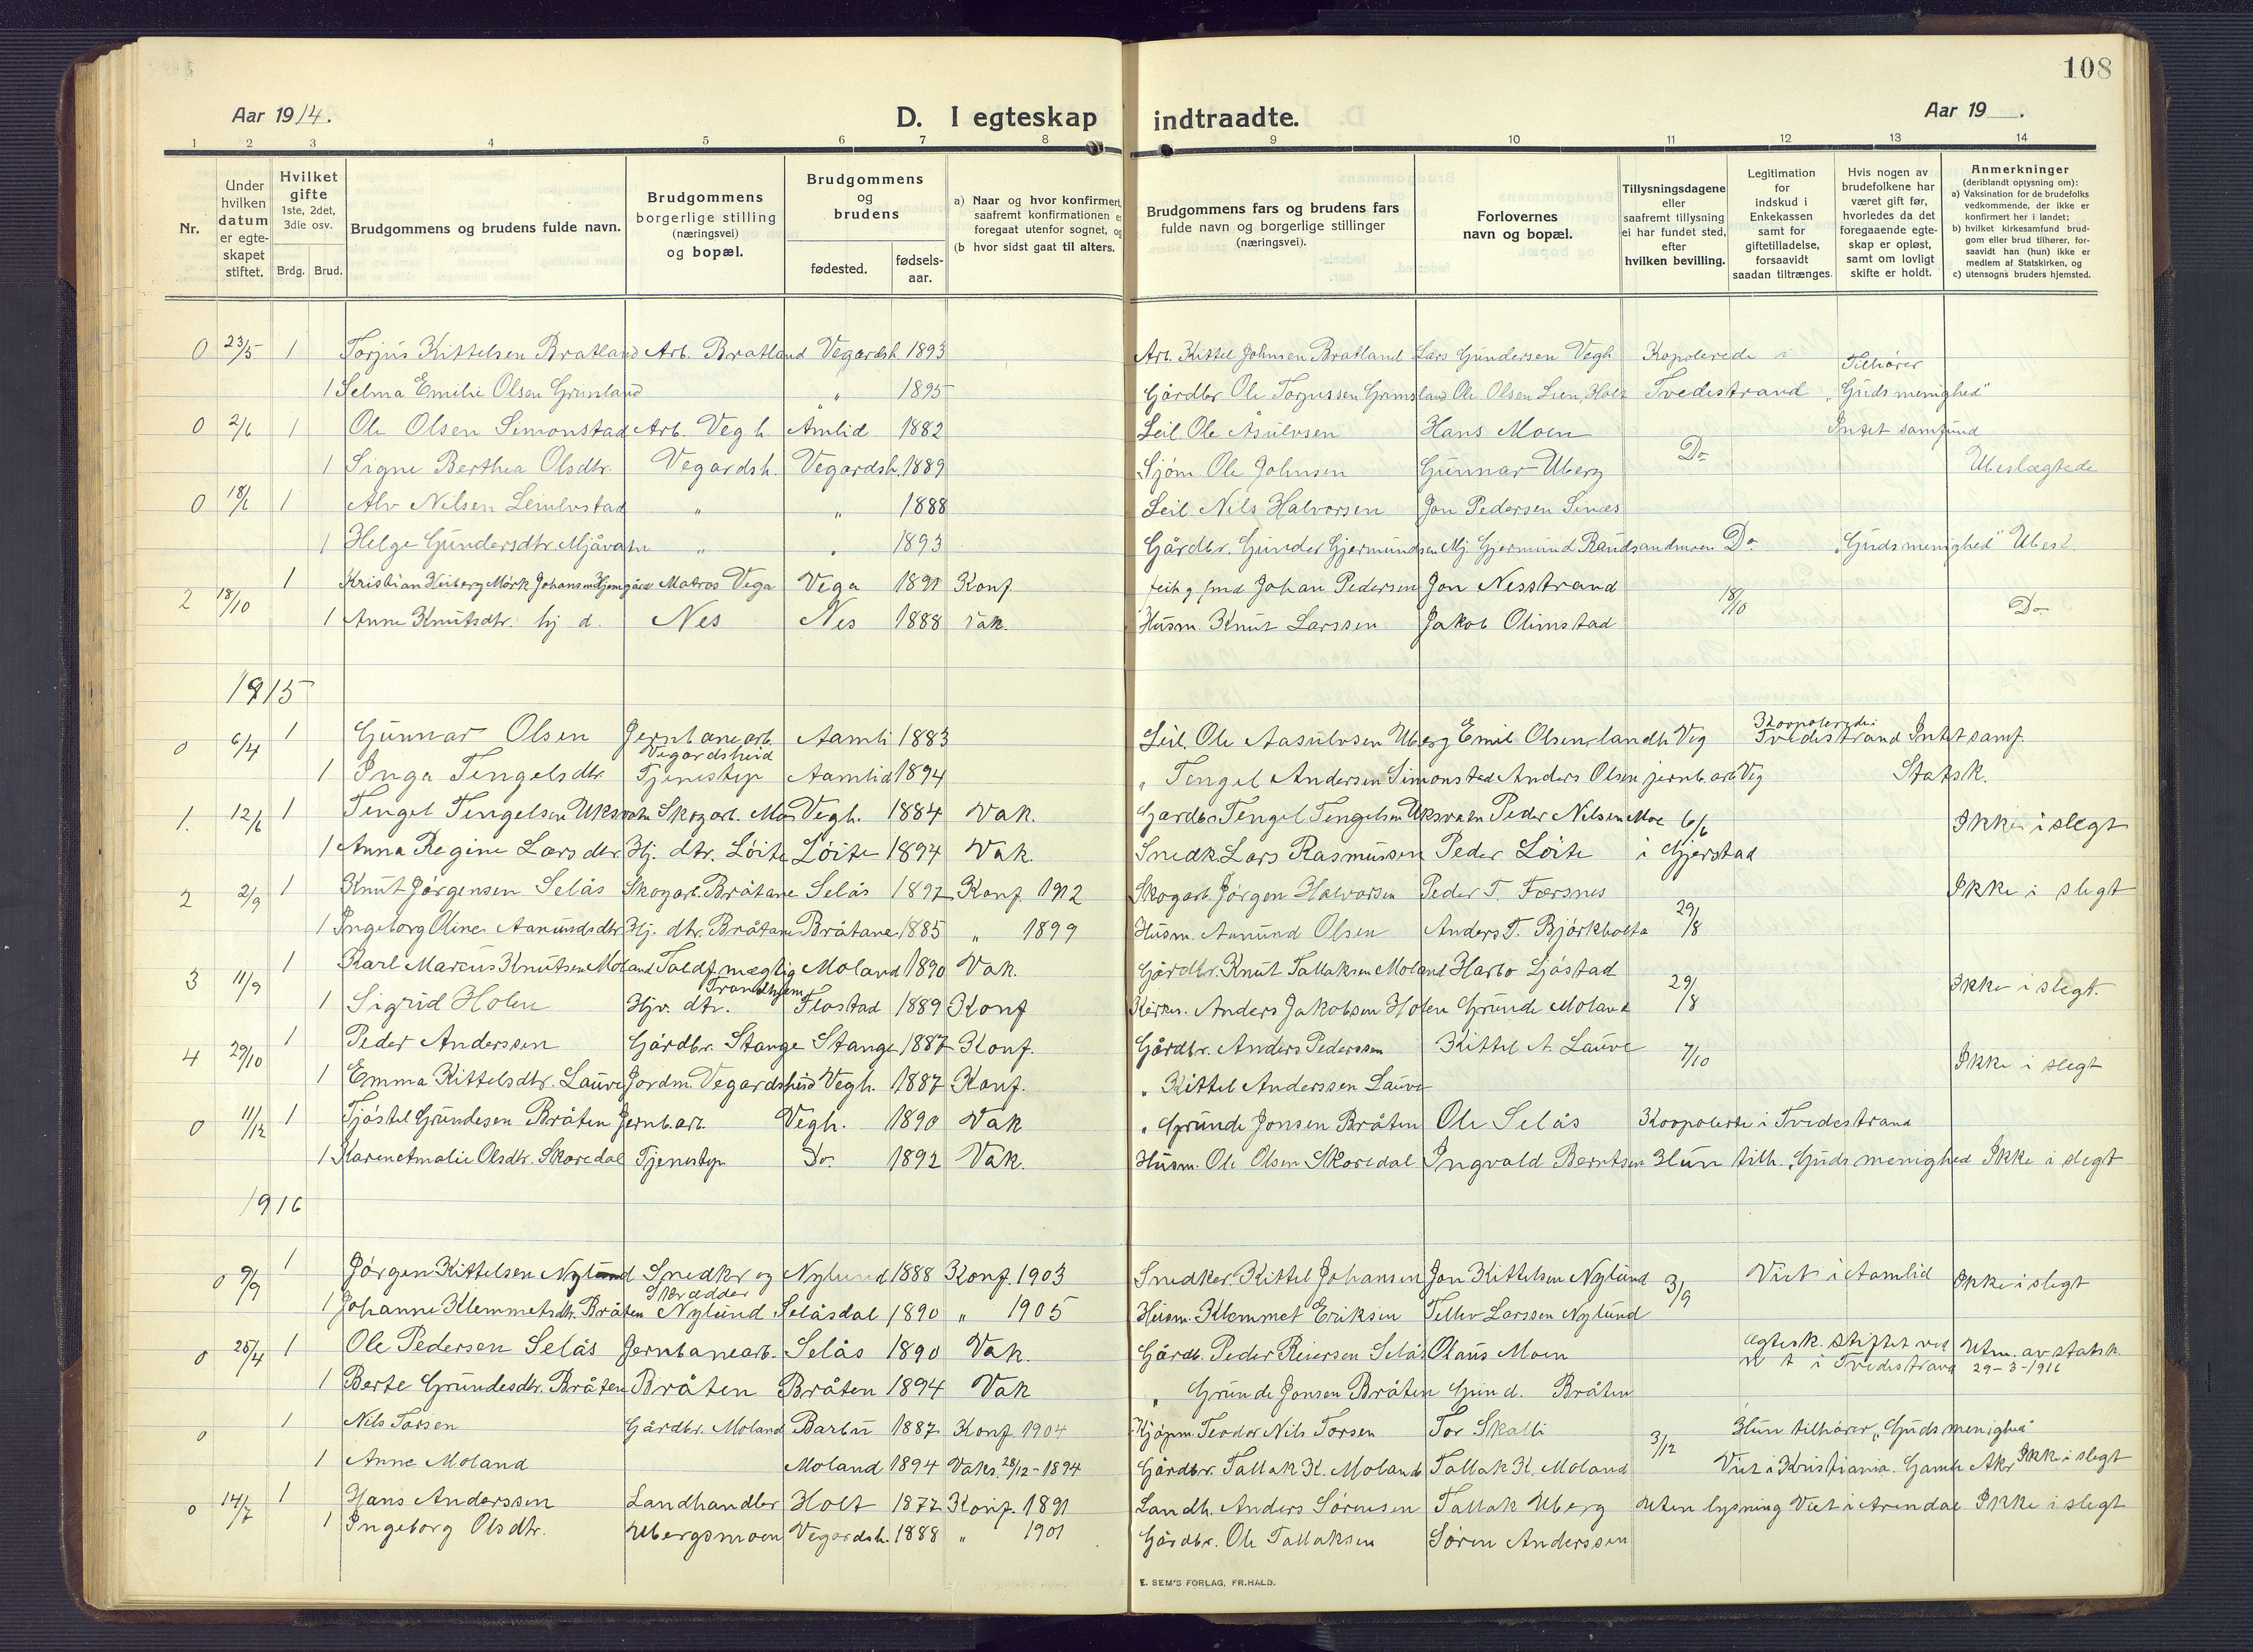 108
Aar 1914.
D. I egteskap indtraadte.
Aar 19 .
1 2 3 4 5 6 7 8 9 10 11 12 13 14
Nr.
Under hvilken datum er egteskapet stiftet.
Hvilket gifte 1ste, 2det, 3die osv.
Brdg. Brud.
Brudgommens og brudens fulde navn.
Brudgommens borgerlige stilling (næringsvei) og bopæl.
Brudgommens og brudens
fødested.
fødsels-aar.
a) Naar og hvor konfirmert, saafremt konfirmationen er foregaat utenfor sognet, og
(b hvor sidst gaat til alters.
Brudgommens fars og brudens fars fulde navn og borgerlige stillinger (næringsvei).
Forlovernes navn og bopæl.
Tillysningsdagene eller saafremt tillysning ei har fundet sted, efter hvilken bevilling.
Legitimation for indskud i Enkekassen samt for giftetilladelse, forsaavidt saadan tiltrænges.
Hvis nogen av brudefolkene har været gift før, hvorledes da det foregaaende egteskap er opløst, samt om lovligt skifte er holdt.
Anmerkninger (deriblandt optysning om):
a) Vaksination for de brudefolks vedkommende, der ikke er konfirmert her i landet;
b) hvilket kirkesamfund brudgom eller brud tilhører, forsaavidt han (hun) ikke er medlem af Statskirken, og
c) utensogns bruders hjemsted.
0 23/5 1 Torjus Kittelsen Bratland Arb. Bratland Vegardsh. 1893 Arb. Kittel Johnsen Bratland Lars Gundersen Vegh Kopolerede i Tilhører
1 Selma Emilie Olsen Grimland " 1895 Gårdbr Ole Torjussen Grimsland Ole Olsen Lien, Holt Tvedestrand "Guds menighed"
0 2/6 1 Ole Olsen Simonstad Arb. Vegh. Åmlid 1882 Leil. Ole Åsulvsen Hans Moen Do Intet samfund
1 Signe Berthea Olsdtr. Vegardsh. Vegardsh. 1889 Sjöm. Ole Johnsen Gunnar Uberg Ubeslægtede
0 18/6 1 Alv Nilsen " " 1888 Leil. Nils Halvorsen Jon Pedersen Sines
1 Helge Gundersdtr. Mjåvatn " " 1893 Gårdbr. Gunder Gjermundsen Mj. Gjermund Raudsandmoen Do "Guds menighed" Ubesl.
2 18/10 1 Kristian Heiberg Mørk Johansen Matros Vega Vega 1891 Konf. Johan Pedersen Jon Nesstrand 18/10 Do
1 Anne Knutsdtr. hj d. Nes Nes 1888 Vak. Husm. Knut Larssen Jakob Olimstad
1915
0 6/4 1 Gunnar Olsen Jernbanearb. Vegardsheid Aamli 1883 Leil. Ole Aasulvsen Uberg Emil Olsen, landh Veg Tvedestrand Intet samf.
1 Inga Tengelsdtr. Tjenestep Aamlid 1894 " Tengel Andersen Simonstad Anders Olsen jernb. arb Veg Statsk.
1. 12/6 1 Tengel Tengelsen Uksvatn Skogarb. Mo Vegh. 1884 Vak. Gardbr Tengel Tengelsen Uksvatn Peder Nilsen Moe 6/6 Ikke i slegt
1 Anna Regine Larsdtr. Hj. dtr. Löite Löite 1894 Vak. Snedk. Lars Rasmussen Peder Löite i Gjerstad
2 2/9 1 Knut Jörgensen Selås Skogarb. Bråtane Selås 1897 Konf. 1912 Skogarb. Jörgen Halvorsen Peder T. Færsnes 29/8 Ikke i slegt
1 Ingeborg Oline Aanundsdtr Hj. dtr. Bråtane Bråtane 1885 " 1899 Husm. Aanund Olsen Anders T. Björkholta
3 11/9 1 Karl Marcus Knutsen Moland Toldfmægtig Trondhjem Moland 1890 Vak. Gårdbr. Knut Tallaksen Moland Harbo Ljöstad 29/8 Ikke i slegt.
1 Sigrid Holen Hjv. dtr. Flostad 1889 Konf Kirkes. Anders Jakobsen Holen Grunde Moland
4 29/10 1 Peder Anderssen Gårdbr. Stange Stange 1887 Konf. Gårdbr. Anders Pederssen Kittel A. Lauve 7/10 Ikke i slegt
1 Emma Kittelsdtr. Lauve Jordm. Vegardsheid Vegh. 1887 Konf. " Kittel Anderssen Lauve
0 11/12 1 Tjöstel Grundesen Bråten Jernb. arb. Vegh. 1890 Vak " Grunde Jonsen Bråten Ole Selås Koopolerte i Tvedestrand
1 Karen Amalie Olsdtr. Skoredal Tjenestep. Do. 1892 Vak. Husm. Ole Olsen Skoredal Ingvald Berntsen Hun tilh. "Guds menighed Ikke i slegt
1916
0 9/9 1 Jörgen Kittelsen Nylund Snedker og Skrædder Nylund 1888 Konf. 1903 Snedker. Kittel Johansen Jon Kittelsen Nylund 3/9 Viet i Aamlid Ikke i slegt
1 Johanne Klemmetsdtr. Bråten Nylund Selåsdal 1890 " 1905 Husm. Klemmet Eriksen Tellev Larssen Nylund
0 28/4 1 Ole Pedersen Selås Jernbanearb. Selås 1890 Vak. Gårdb. Peder Reiersen Selås Olaus Moen ægtesk. stiftet ved i Tvedestrand Utm. av statsk. 29-3-1916
1 Berte Grundesdtr. Bråten Bråten Bråten 1894 Vak " Grunde Jonsen Bråten Gund. Bråten
0 1 Nils Torsen Gårdbr. Moland Barbu 1887 Konf. 1904 Kjöpm. Teodor Nils Torsen Tor Skalli 3/12 Hun tilhører "Guds menighed"
1 Anne Moland Moland 1894 Vaks. 28/12-1894 Gårdbr. Tallak K. Moland Tallak K. Moland Viet i Kristiania. Gamle Aker Ikke i slegt
0 14/7 1 Hans Anderssen Landhandler Holt 1877 Konf. 1891 Landh. Anders Sörensen Tallak Uberg Uten lysning Viet i Arendal Ikke i slegt
1 Ingeborg Olsdtr. Ubergsmoen Vegardsh. 1888 " 1901 Gårdbr. Ole Tallaksen Sören Anderssen
E. SEM'S FORLAG, FR.HALD.